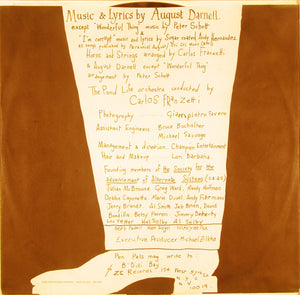 Music & Lyrics by August Darnell.
except "Wonderful Thing" music by Peter Schott
&
"I'm corrupt" music and lyrics by Sugar coated Andy Hernandez
Horns and Strings arranged by Carlos Franzetti
& August Darnell except "Wonderful Thing"
arrangement by Peter Schott
The Pond Life orchestra conducted by
Carlos Franzetti
Photography Gianpietro Favero
Assistant Engineers Bruce Buchalter
Michael Sauvage
Management & direction Champion Entertainment
Hair and Makeup Lori Barbaria
Founding members of the Society for the
Advancement of Alternate Systems (S.A.A.S)
Jillian McBroune Greg Ward, Wendy Hoffman
Debbie Caponetta Maria Duval Andy Fuhrmann
Jerry Brandt, Al Smith, Jeb Brien, David
Bandilla Betsy Herron Jimmy Doherty
Executive Producer Michael Zilkha
Pen Pals may write to
B. Didi Bay
ZE Records 156 West 57th
N.Y.
N.Y.
10019